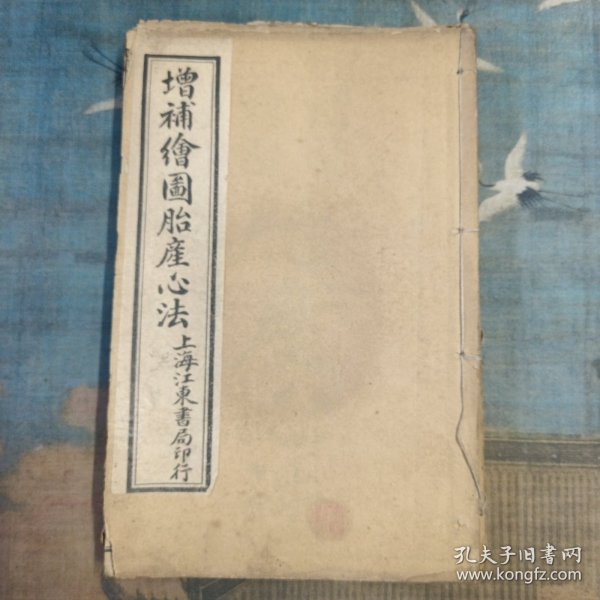 增補繪圖胎產心法
上海江東書局印行
孔夫子旧书网
www.kongfz.com